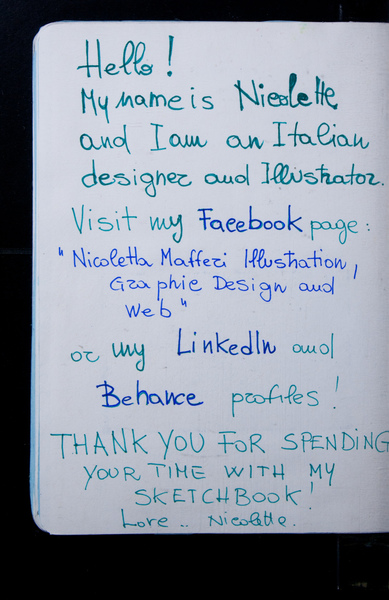 Hello!
My name is Nicolette
and I am an Italian
designer and Illustrator.
Visit my Facebook page:
"Nicoletta Mafferi Illustration,
Graphic Design and
Web"
or my LinkedIn and
Behance profiles!
THANK YOU FOR SPENDING
YOUR TIME WITH MY
SKETCHBOOK!
Love .. Nicolette.